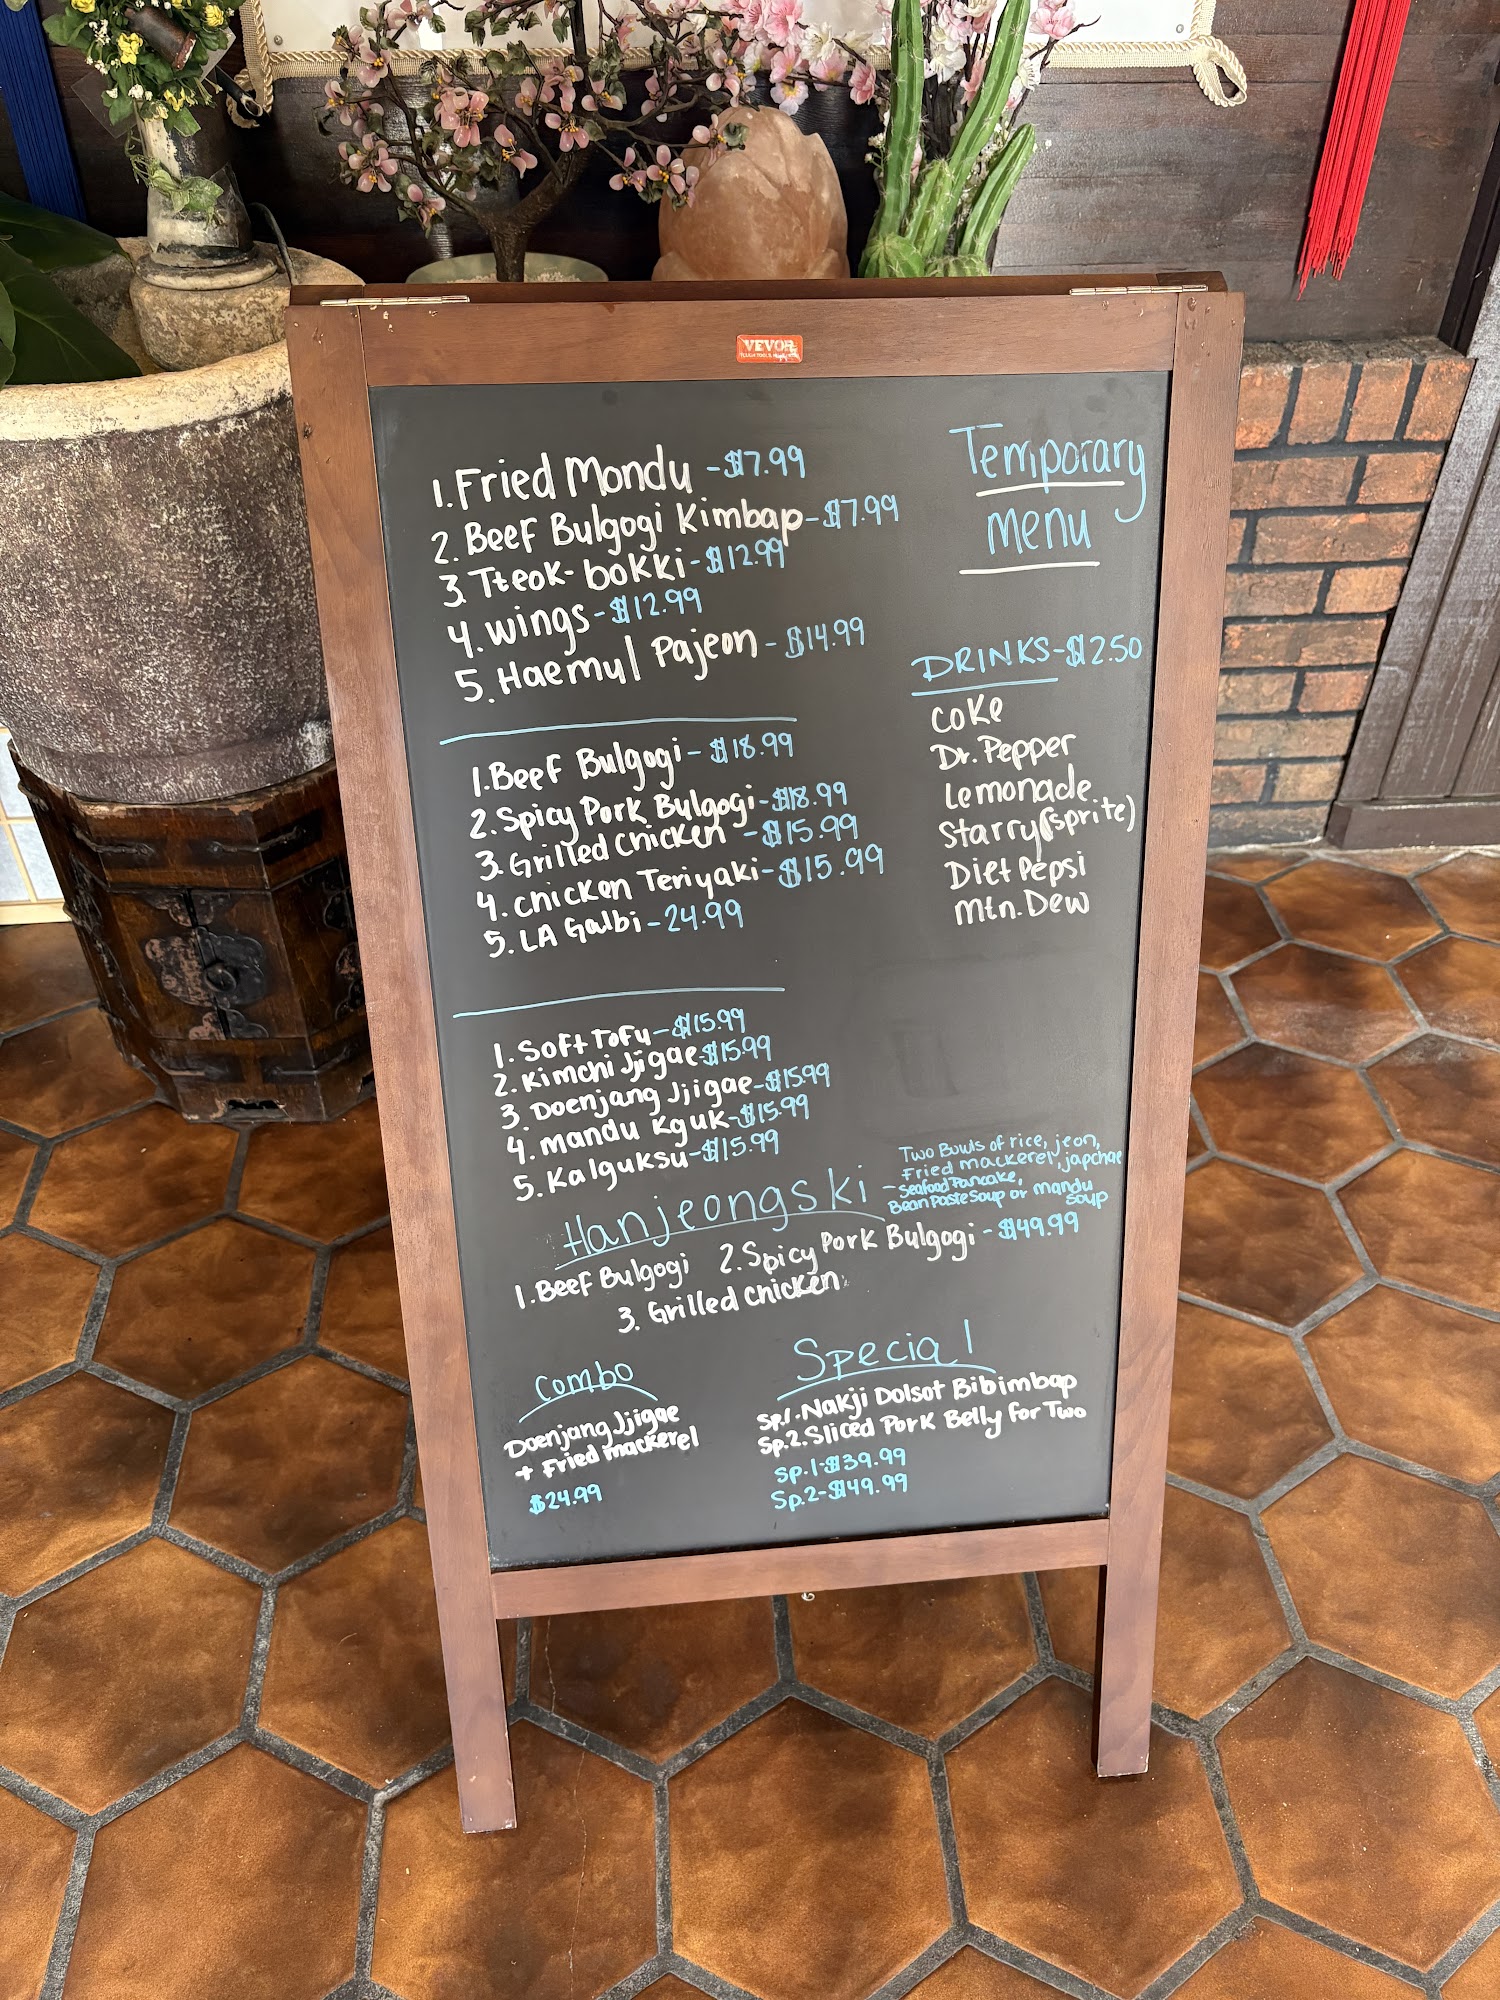 VEVOR
1. Fried Mondu - $7.99
2. Beef Bulgogi Kimbap - $7.99
3. Tteok-bokki - $12.99
4. wings - $12.99
5. Haemul Pajeon - $14.99
Temporary
menu
DRINKS - $2.50
Coke
Dr. Pepper
Lemonade
Starry (sprite)
Diet Pepsi
Mtn. Dew
1. Beef Bulgogi - $18.99
2. Spicy Pork Bulgogi - $18.99
3. Grilled Chicken - $15.99
4. Chicken Teriyaki - $15.99
5. LA Galbi - 24.99
1. Soft Tofu - $15.99
2. Kimchi Jjigae - $15.99
3. Doenjang Jjigae - $15.99
4. mandu Kguk - $15.99
5. Kalguksu - $15.99
Hanjeongski
- Two Bowls of rice, jeon,
Fried mackerel, japchae
Seafood Pancake,
Bean Paste Soup or mandu
soup
1. Beef Bulgogi 2. Spicy Pork Bulgogi - $49.99
3. Grilled Chicken
Combo
Doenjang Jjigae
+ Fried mackerel
$24.99
Special
Sp.1. Nakji Dolsot Bibimbap
Sp.2. Sliced Pork Belly for Two
Sp.1 - $39.99
Sp.2 - $49.99